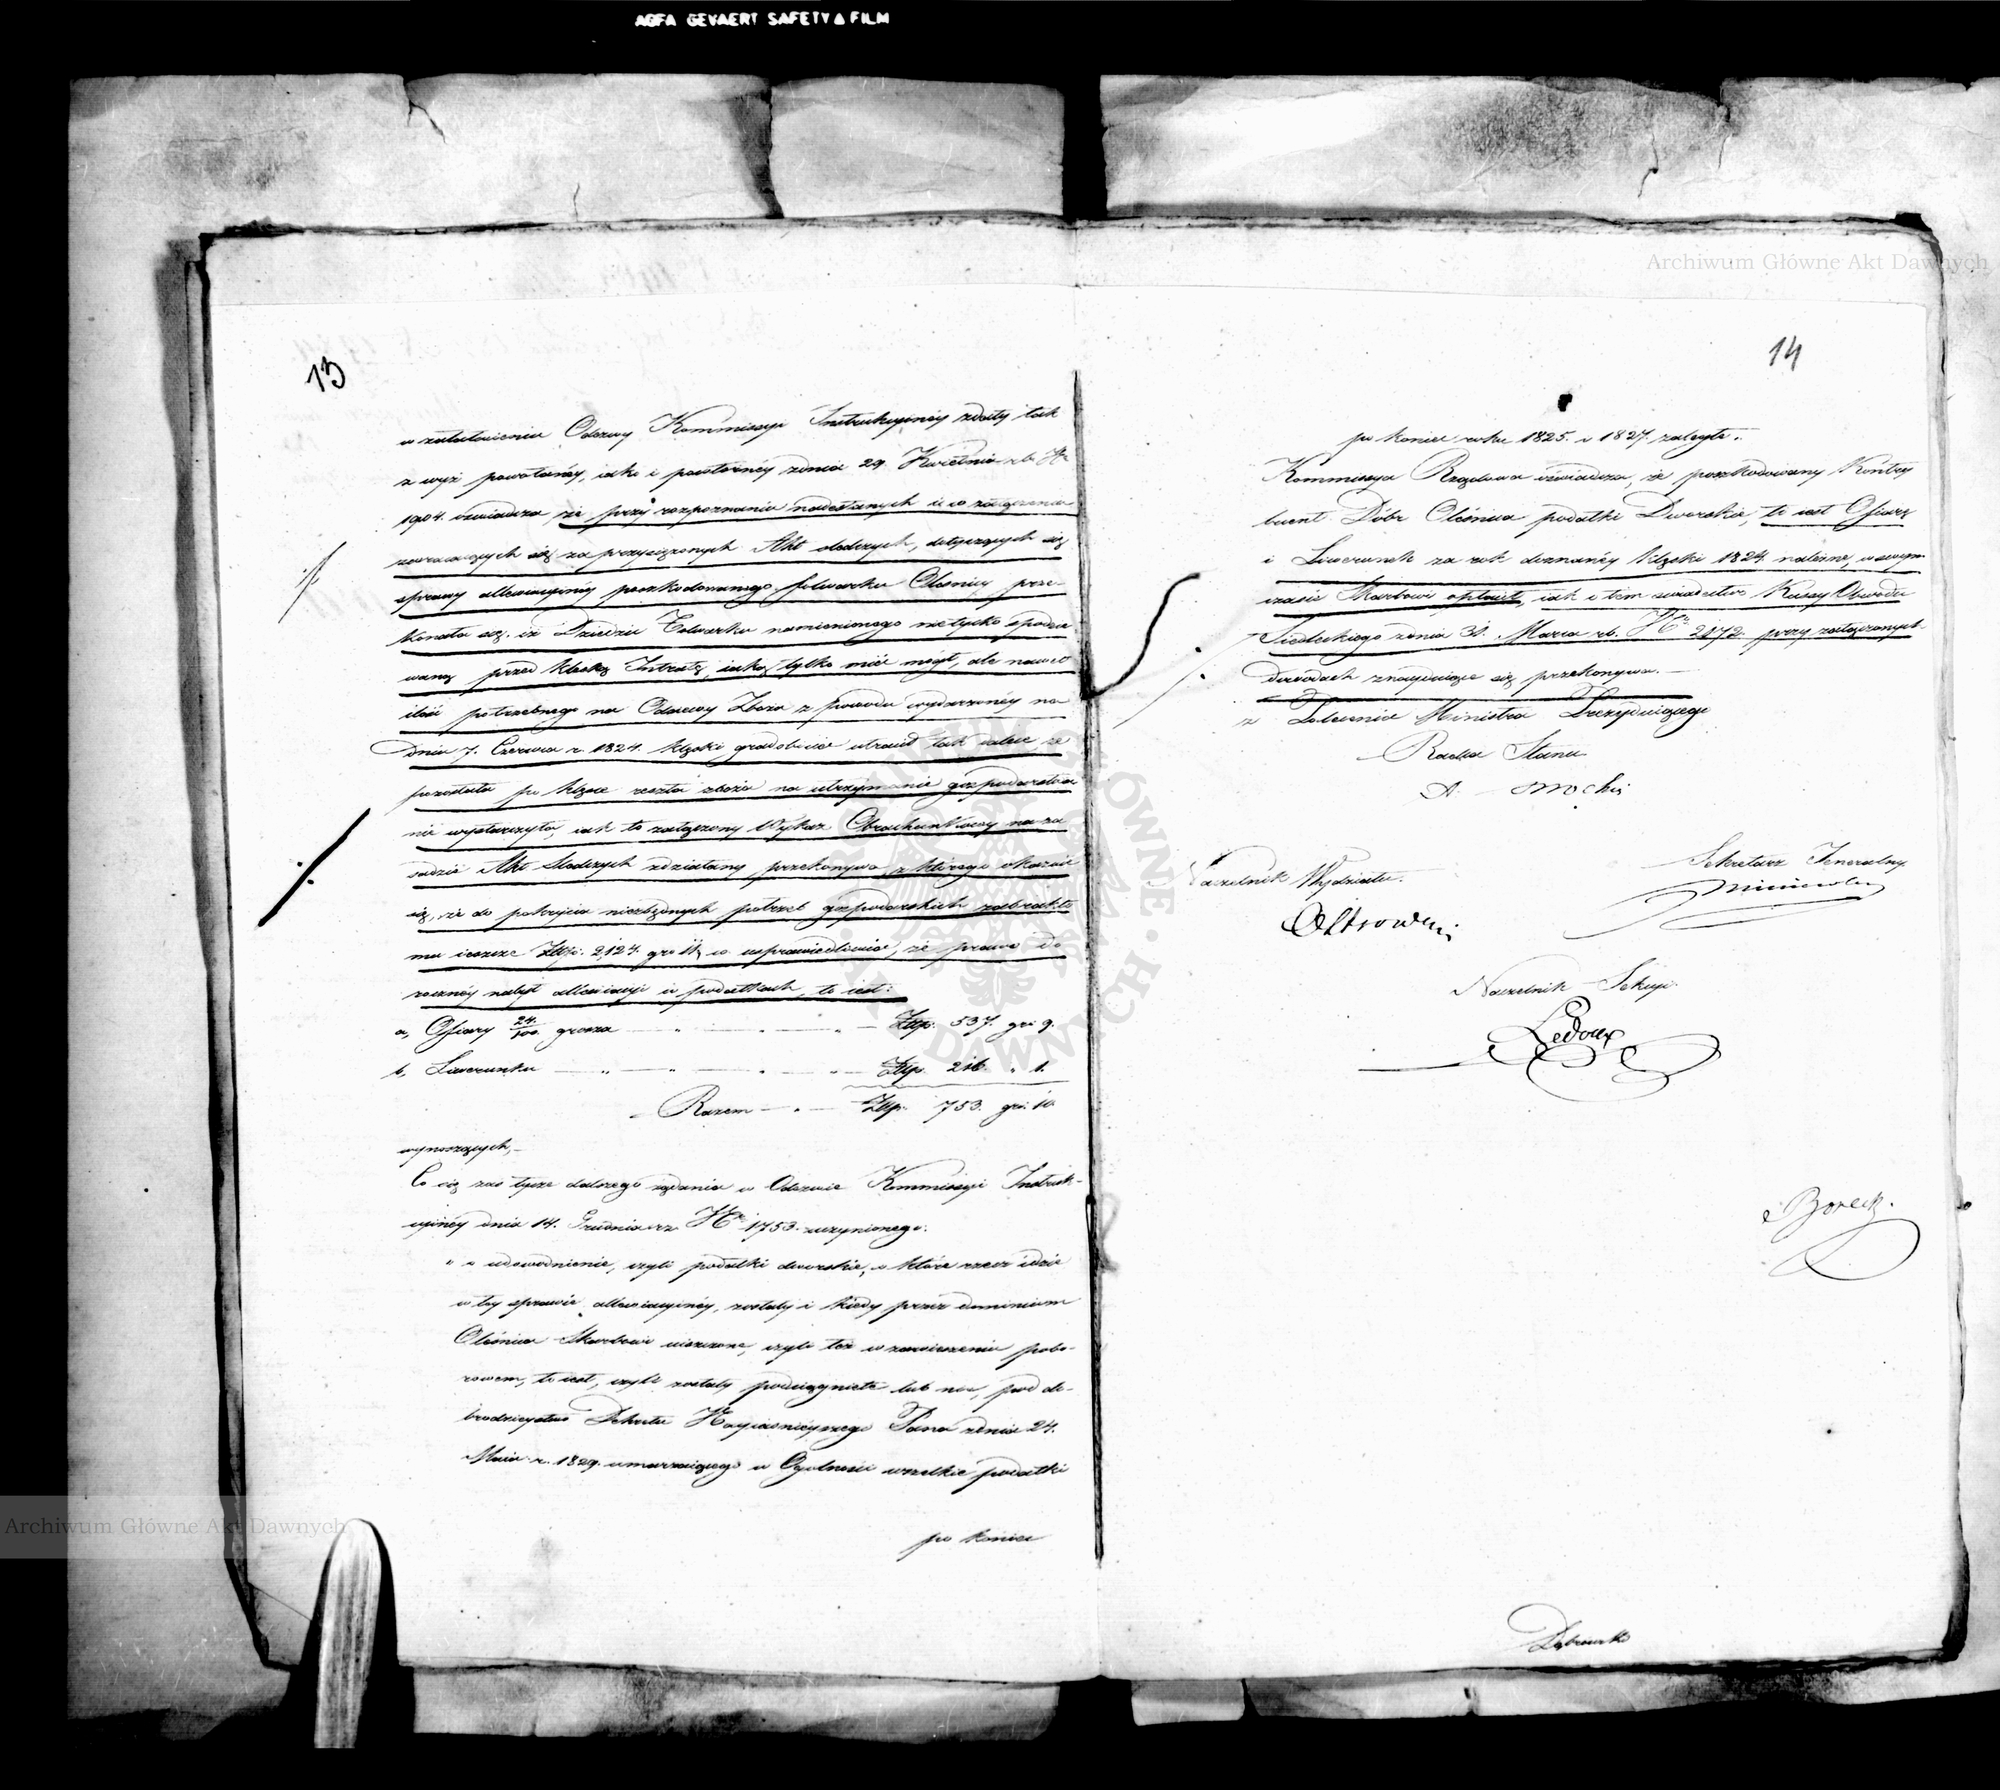 AGFA GEVAERT SAFETY FILM
Archiwum Główne Akt Dawnych
13
w załatwieniu Odezwy Kommissyi Instrukcyinéy zdaty tak
z wyż powołanéy, iako i powtórnéy z dnia 29. Kwietnia r. b. Nr
1904. oświadcza że przy rozpoznaniu nadesłanych i w załączeniu
zwracaiących się za przyłączonych Akt śledczych, dotyczących się
sprawy allewiacyinéy poszkodowanego folwarku Oleśnicy prze-
konała się, iż Dziedzic Folwarku namienionego nie tylko spodzie
waną przed klęską Intratę, iaką tylko mieć mógł, ale nawet
ilość potrzebnego na Odsiewy Zboża z powodu wydarzonéy na
dniu 7. Czerwca r. 1824. klęski gradobicia utracił tak dalece że
pozostała po klęsce reszta zboża na utrzymanie gospodarstwa
nie wystarczyła, iak to załączony Wykaz Obrachunkowy na za
sadzie Akt śledczych zdziałany przekonywa, z którego okazuie
się, że do pokrycia niezbędnych potrzeb gospodarskich zabrakło
mu ieszcze Złp. 2,124. gr 11, co usprawiedliwia, że prawo do
rocznéy nabył allewiacyi w podatkach, to iest:
a, Ofiary 24/100 grosza — " — " — Złp. 537. gr. 9.
b, Liwerunku — " — " — Złp. 216. " 1.
Razem — " — Złp. 753. gr. 10
wynoszących,—
Co się zaś tycze dalszego żądania w Odezwie Kommissyi Instruk-
cyinéy dnia 14. Grudnia r. z. Nr 1753. uczynionego:
" o udowodnienie, czyli podatki dworskie, o które rzecz idzie
w tey sprawie allewiacyinéy, zostały i kiedy przez dominium
Oleśnica Skarbowi uiszczone, czyli też w zawieszeniu pobo-
rowem, to iest, czyli zostały podciągnięte lub nie, pod do-
brodzieystwo Dekretu Nayiaśnieyszego Pana z dnia 24.
Maia r. 1829. umarzaiącego w Ogólności wszelkie podatki
po koniec
14
po koniec roku 1825. i 1827. zaległe.
Kommissya Rządowa oświadcza, że poszkodowany Kontry
buent Dóbr Oleśnica podatki Dworskie, to iest Ofiarę
i Liwerunek za rok doznanéy klęski 1824 należne, w swym
czasie Skarbowi opłacił, iak o tem świadectwo Kassy Obwodu
Siedleckiego z dnia 31. Marca r. b. Nr 2172. przy załączonych
dowodach znayduiące się przekonywa.—
z Polecenia Ministra Prezyduiącego
Radca Stanu
Naczelnik Wydziału.
Sekretarz Jeneralny
Naczelnik Sekcyi
Ledoux
Dąbrowski
Archiwum Główne Akt Dawnych
ARCHIWUM GŁÓWNE · AKT DAWNYCH ·